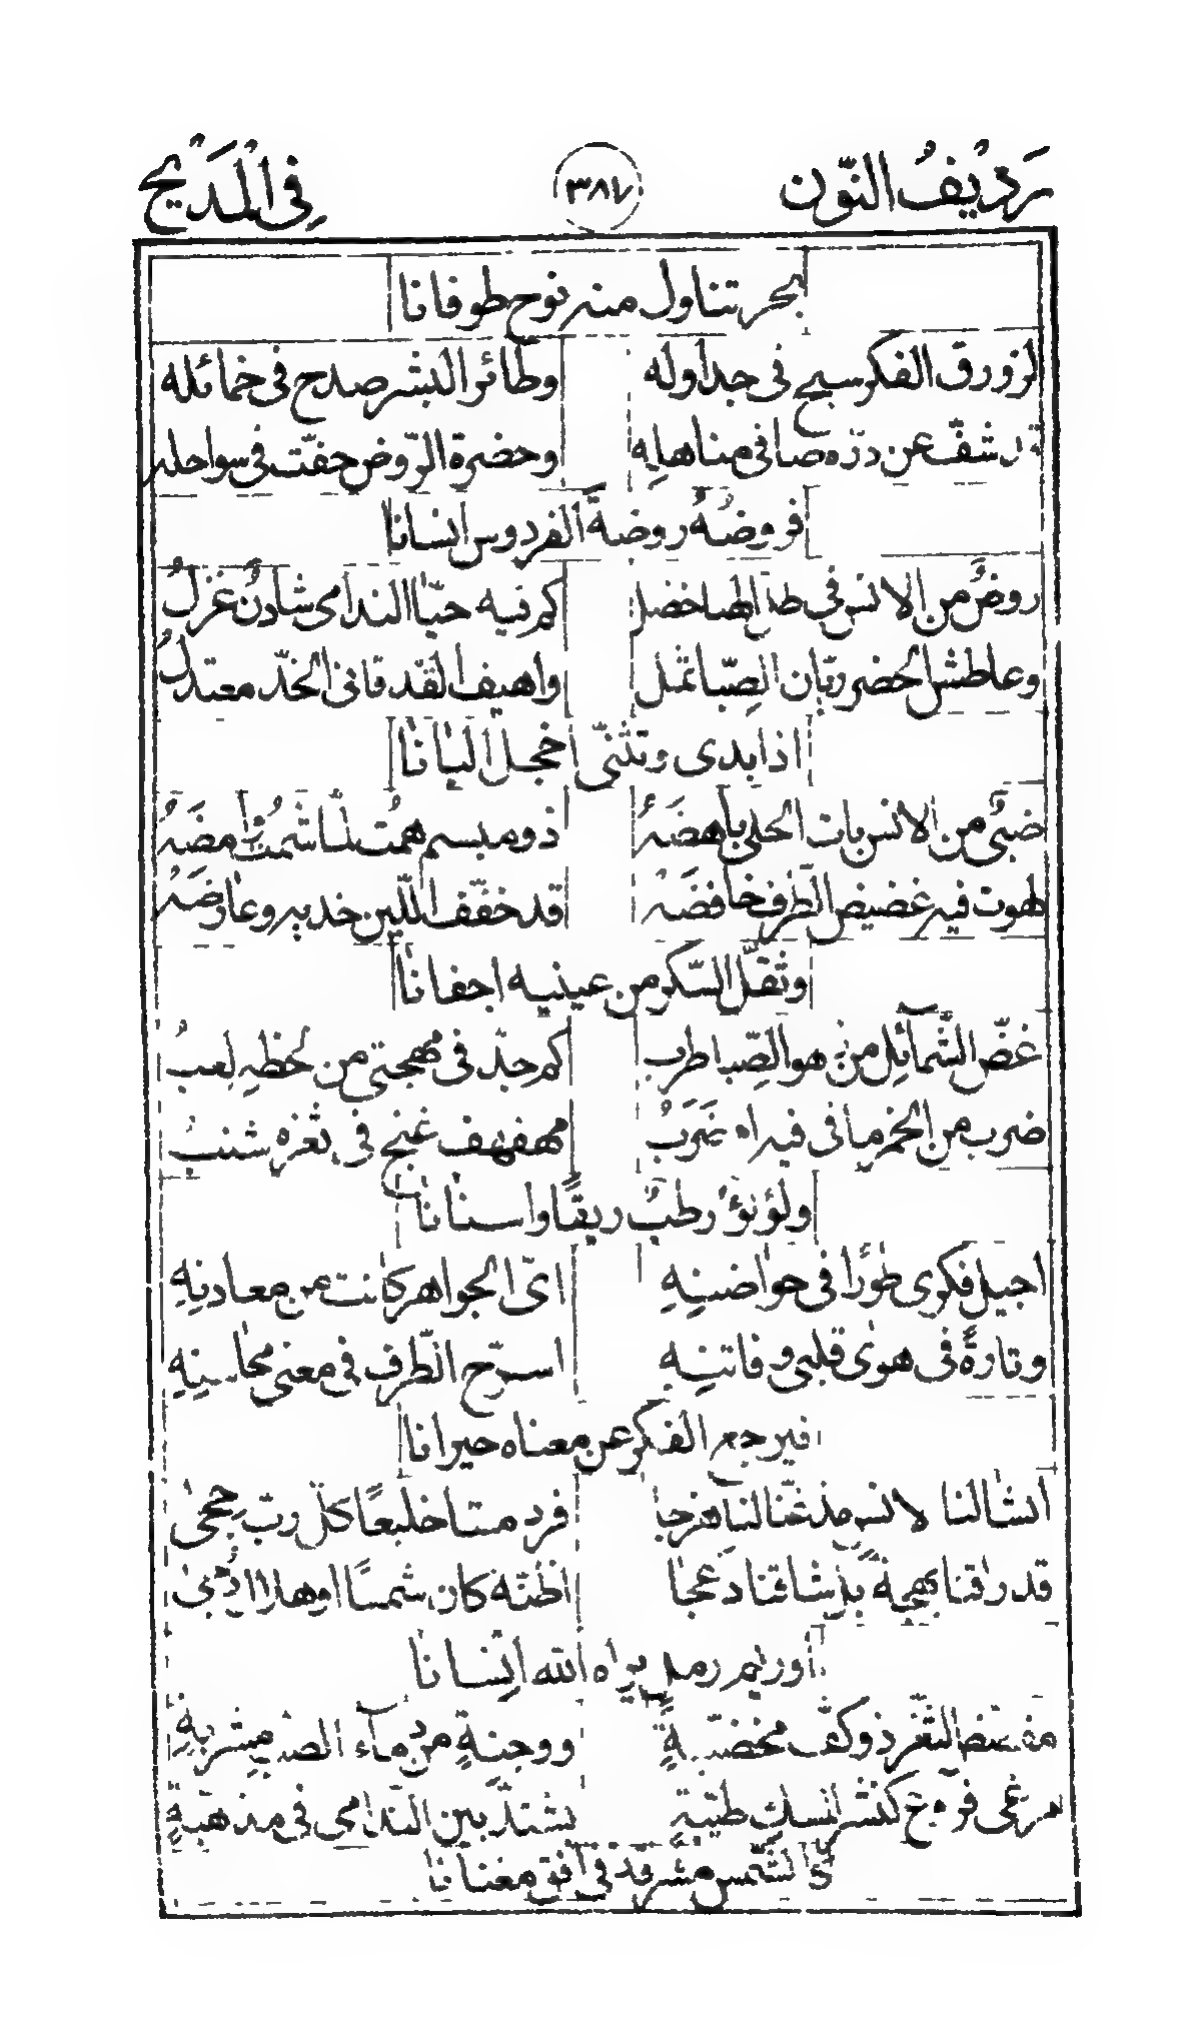 رَدِيْفُ النّون ٣٨٧ فِى الْمَدَيْح
بحر تناول منه نوح طوفانا
لزورق الفكر سبح فى جداوله وطائر البشر صدح فى خمائله
قد شفّ عن درّه صافى مناهله وحضرة الرّوض حفّت فى سواحله
فروضهُ روضةَ الفردوس انسانا
روضٌ من الانس فى خضل كم فيه حيّا الندامى شادنٌ غزلُ
وعاطش الخضر ريّان الصّبا ثمل واهيف القدّ قانى الخدّ معتدلُ
اذا بدى وتثنّى اخجل البانا
ضبىٌ من الانس بات الحلى ذو مبسم همُت لمّا شمُت امضَهُ
طهوت فيه غضيض الطّرف خافضَهُ قد خفّف اللّين خديه وعارضَهُ
وثقّل السّكر من عينيه اجفانا
غضّ الشّمآئل من هو الصّبا طرب كم جدّ فى مهجتى من لحظهِ لعبُ
ضرب من الخمر ما فى فيه اه ضَرَبُ مهفهف غنج فى ثغره شنبُ
ولؤلؤٌ رطبٌ ريقًا واسنانا
اجيل فكرى طورًا فى حواضنِهِ اىّ الجواهر كانت من معادنِهِ
وتارةً فى هوى قلبى وفاتنِهِ اسرّح الطّرف فى معنى محاسنِهِ
فيرجع الفكر عن معناه حيرانا
انشالنا لانس مذ غنّا لنا هزجا فرد متا خليعًا كلّ ربّ حجىٰ
قد راقنا بهجةً دعجا اظنّه كان شمسًا او هلالا دُجىٰ
اوريم رمل براه الله انسانا
الثّغر ذو كفّ مخضّبةٍ ووجنةٍ من مآء مشربةِ
كنشر المسك طيّبةٍ يشتدّ بين النّدامى فى مذهّبةٍ
كالشّمس مشرقة فى افق مغنانا